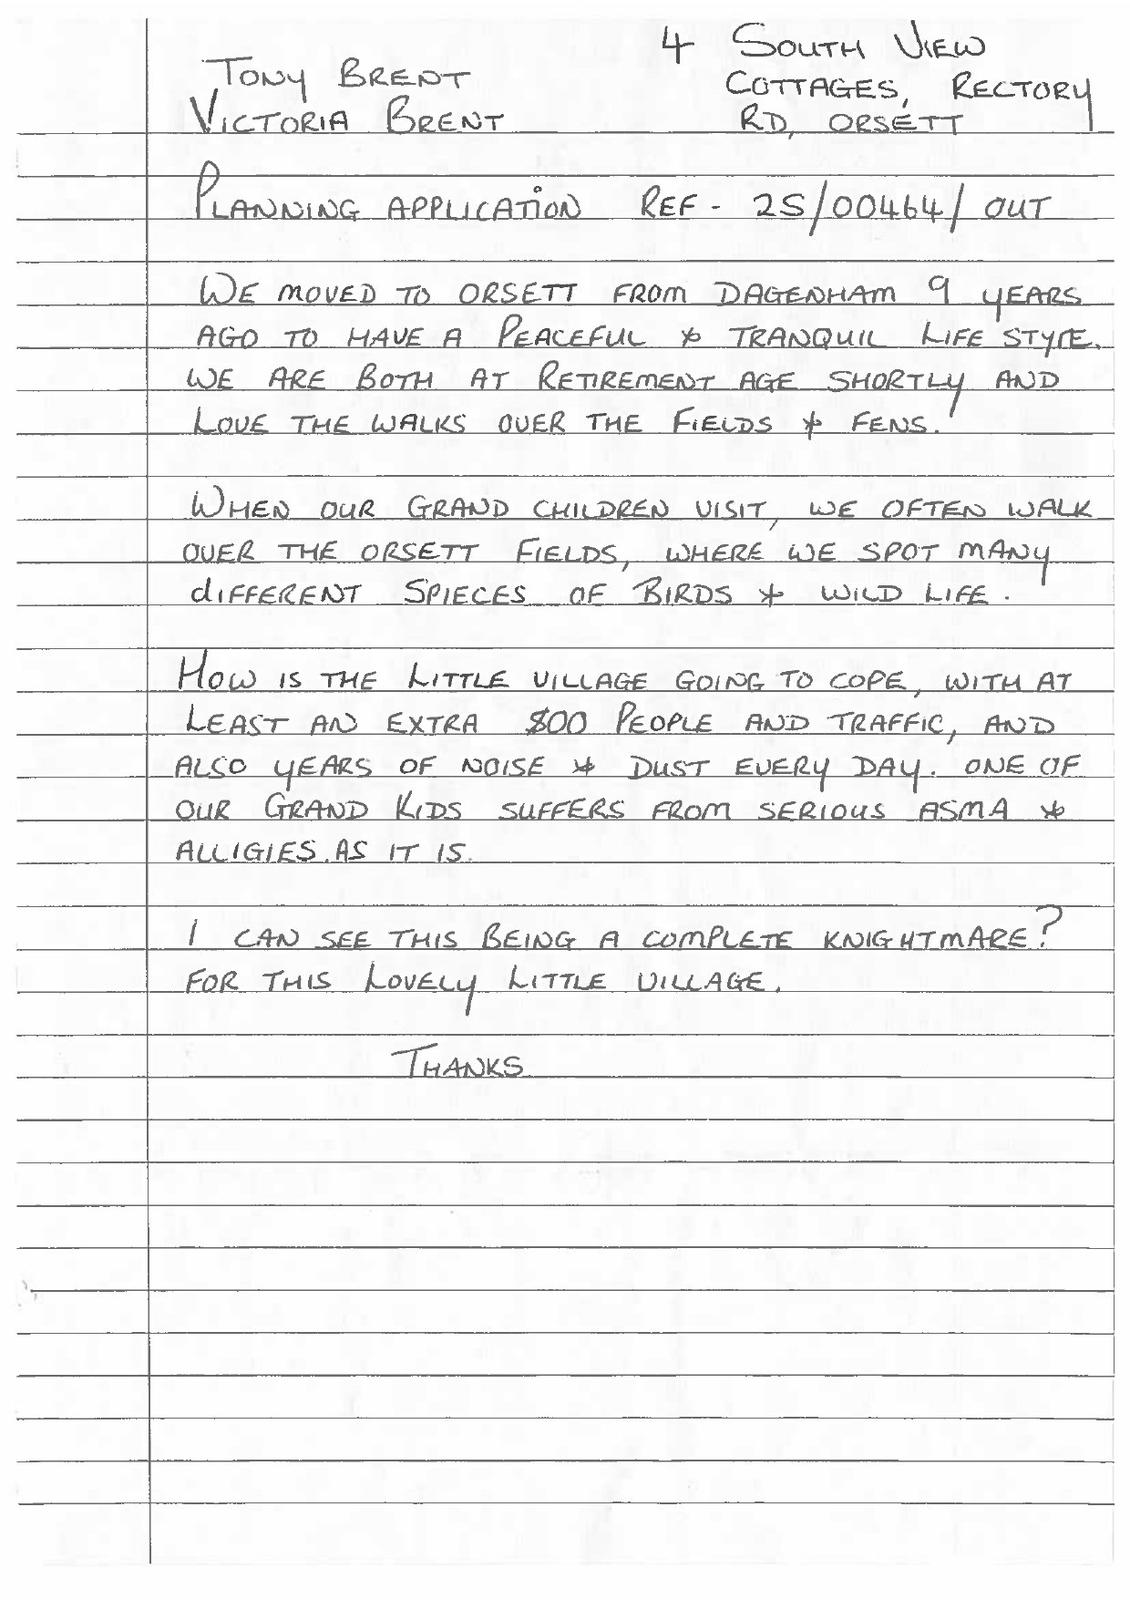 TONY BRENT
VICTORIA BRENT
4 SOUTH VIEW
COTTAGES, RECTORY
RD, ORSETT
PLANNING APPLICATION REF - 25/00464/OUT
WE MOVED TO ORSETT FROM DAGENHAM 9 YEARS
AGO TO HAVE A PEACEFUL & TRANQUIL LIFE STYLE.
WE ARE BOTH AT RETIREMENT AGE SHORTLY AND
LOVE THE WALKS OVER THE FIELDS & FENS.
WHEN OUR GRAND CHILDREN VISIT, WE OFTEN WALK
OVER THE ORSETT FIELDS, WHERE WE SPOT MANY
dIFFERENT SPIECES OF BIRDS & WILD LIFE.
HOW IS THE LITTLE VILLAGE GOING TO COPE, WITH AT
LEAST AN EXTRA PEOPLE AND TRAFFIC, AND
ALSO YEARS OF NOISE & DUST EVERY DAY. ONE OF
OUR GRAND KIDS SUFFERS FROM SERIOUS ASMA &
ALLIGIES. AS IT IS.
I CAN SEE THIS BEING A COMPLETE KNIGHTMARE?
FOR THIS LOVELY LITTLE VILLAGE.
THANKS